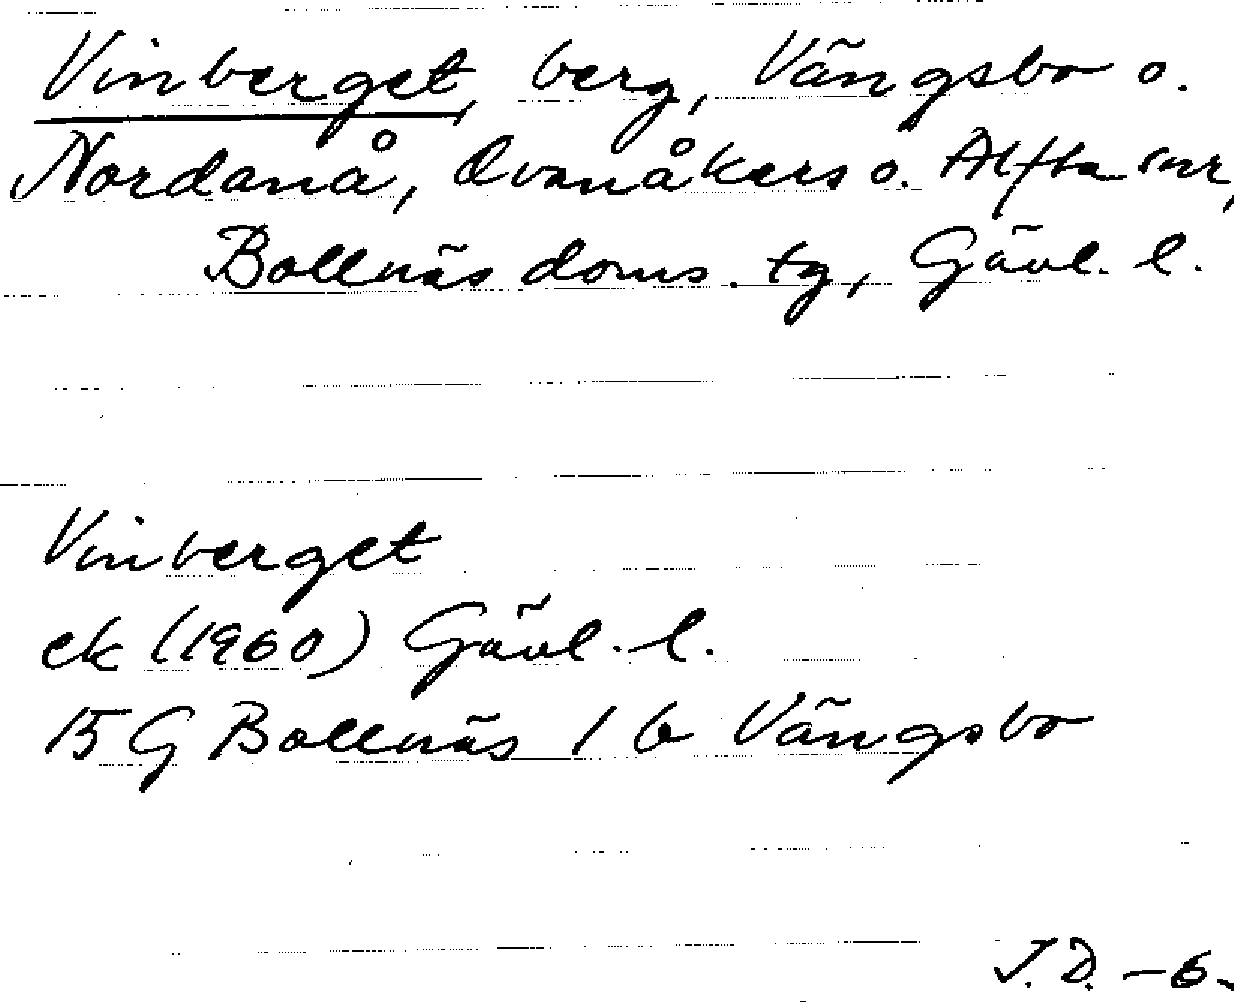 Vinberget, berg, Vängsbo o.
Nordanå, Ovanåkers o. Alfta snr,
Bollnäs doms. tg, Gävl. l.
Vinberget
ek (1960) Gävl. l.
15 G Bollnäs 1 b Vängsbo
J.D. -6